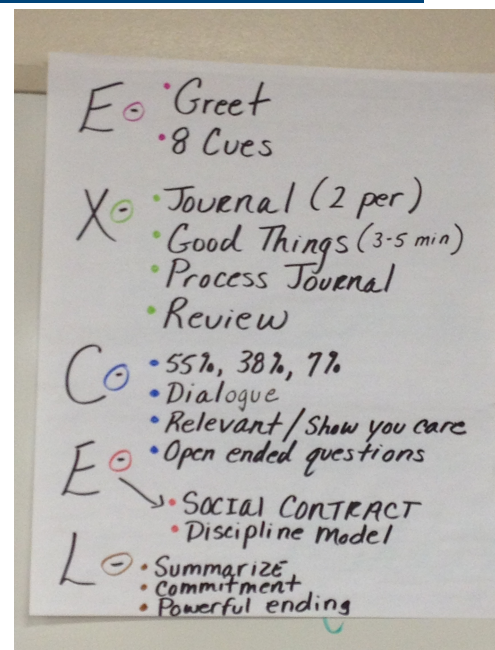 E - • Greet
• 8 Cues
X - • Journal (2 per)
• Good Things (3-5 min)
• Process Journal
• Review
C - • 55%, 38%, 7%
• Dialogue
• Relevant / Show you care
• Open ended questions
E -
• SOCIAl CONTRACT
• Discipline Model
L - • Summarize
• Commitment
• Powerful ending